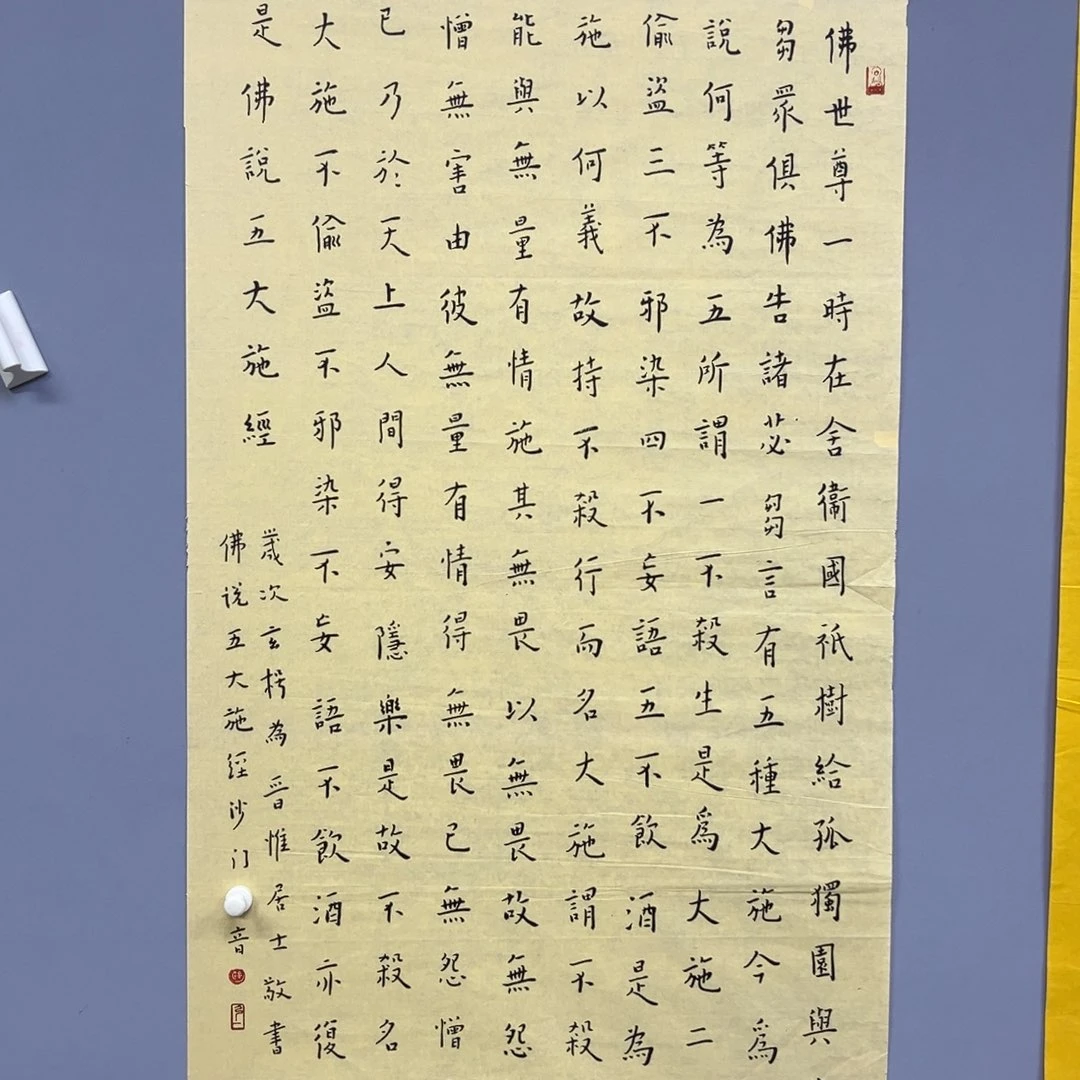 佛世尊一時在舍衛國祇樹給孤獨園與
芻眾俱佛告諸苾芻言有五種大施今爲
說何等為五所謂一不殺生是爲大施二
偷盜三不邪染四不妄語五不飲酒是為
施以何義故持不殺行而名大施謂不殺
能與無量有情施其無畏以無畏故無怨
憎無害由彼無量有情得無畏已無怨憎
已乃於天上人間得安隱樂是故不殺名
大施不偷盜不邪染不妄語不飲酒亦復
是佛說五大施經
歲次玄枵為晉惟居士敬書
佛说五大施經沙门音